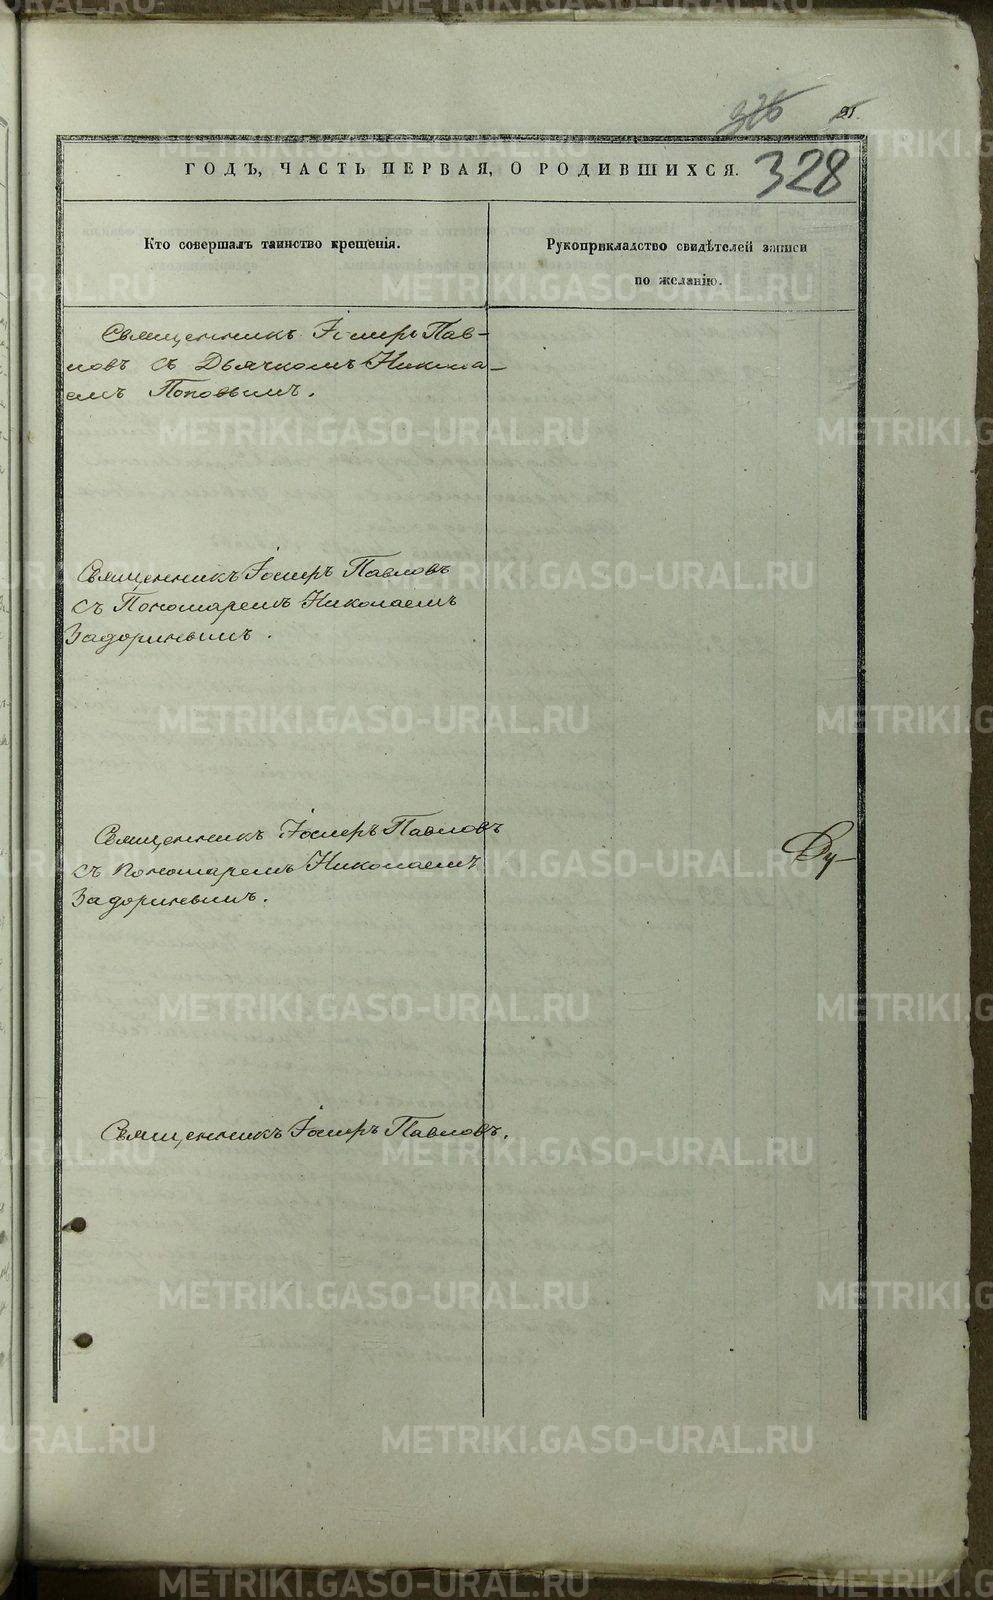 328
ГОДЪ, ЧАСТЬ ПЕРВАЯ, О РОДИВШИХСЯ.
Кто совершалъ таинство крещенія.
Рукоприкладство свидѣтелей записи
по желанію.
Священникъ Іосифъ Пав-
ловъ съ Дьячкомъ Никола-
емъ Поповымъ.
Священникъ Іосифъ Павловъ
съ Пономаремъ Николаемъ
Задоринымъ.
Священникъ Іосифъ Павловъ
съ Пономаремъ Николаемъ
Задоринымъ.
Священникъ Іосифъ Павловъ.
METRIKI.GASO-URAL.RU